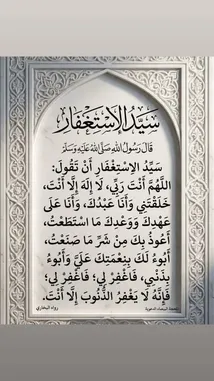 سَيِّدُ الِاسْتِغْفَارِ
قَالَ رَسُولُ اللهِ صَلَّى اللهُ عَلَيْهِ وَسَلَّمَ
سَيِّدُ الِاسْتِغْفَارِ أَنْ تَقُولَ:
اللَّهُمَّ أَنْتَ رَبِّي، لَا إِلَهَ إِلَّا أَنْتَ،
خَلَقْتَنِي وَأَنَا عَبْدُكَ، وَأَنَا عَلَى
عَهْدِكَ وَوَعْدِكَ مَا اسْتَطَعْتُ،
أَعُوذُ بِكَ مِنْ شَرِّ مَا صَنَعْتُ،
أَبُوءُ لَكَ بِنِعْمَتِكَ عَلَيَّ وَأَبُوءُ
بِذَنْبِي، فَاغْفِرْ لِي؛ فَاغْفِرْ لِي؛
فَإِنَّهُ لَا يَغْفِرُ الذُّنُوبَ إِلَّا أَنْتَ.
رواه البخاري